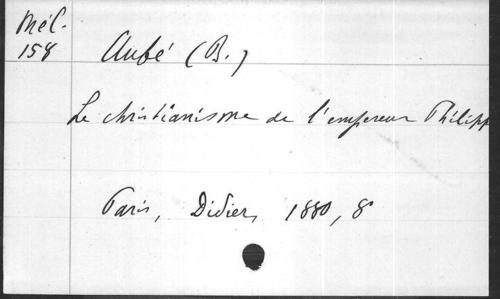 Mél.
158
Aubé (B.)
Le christianisme de l'empereur Philipp
Paris, Didier, 1880, 8°